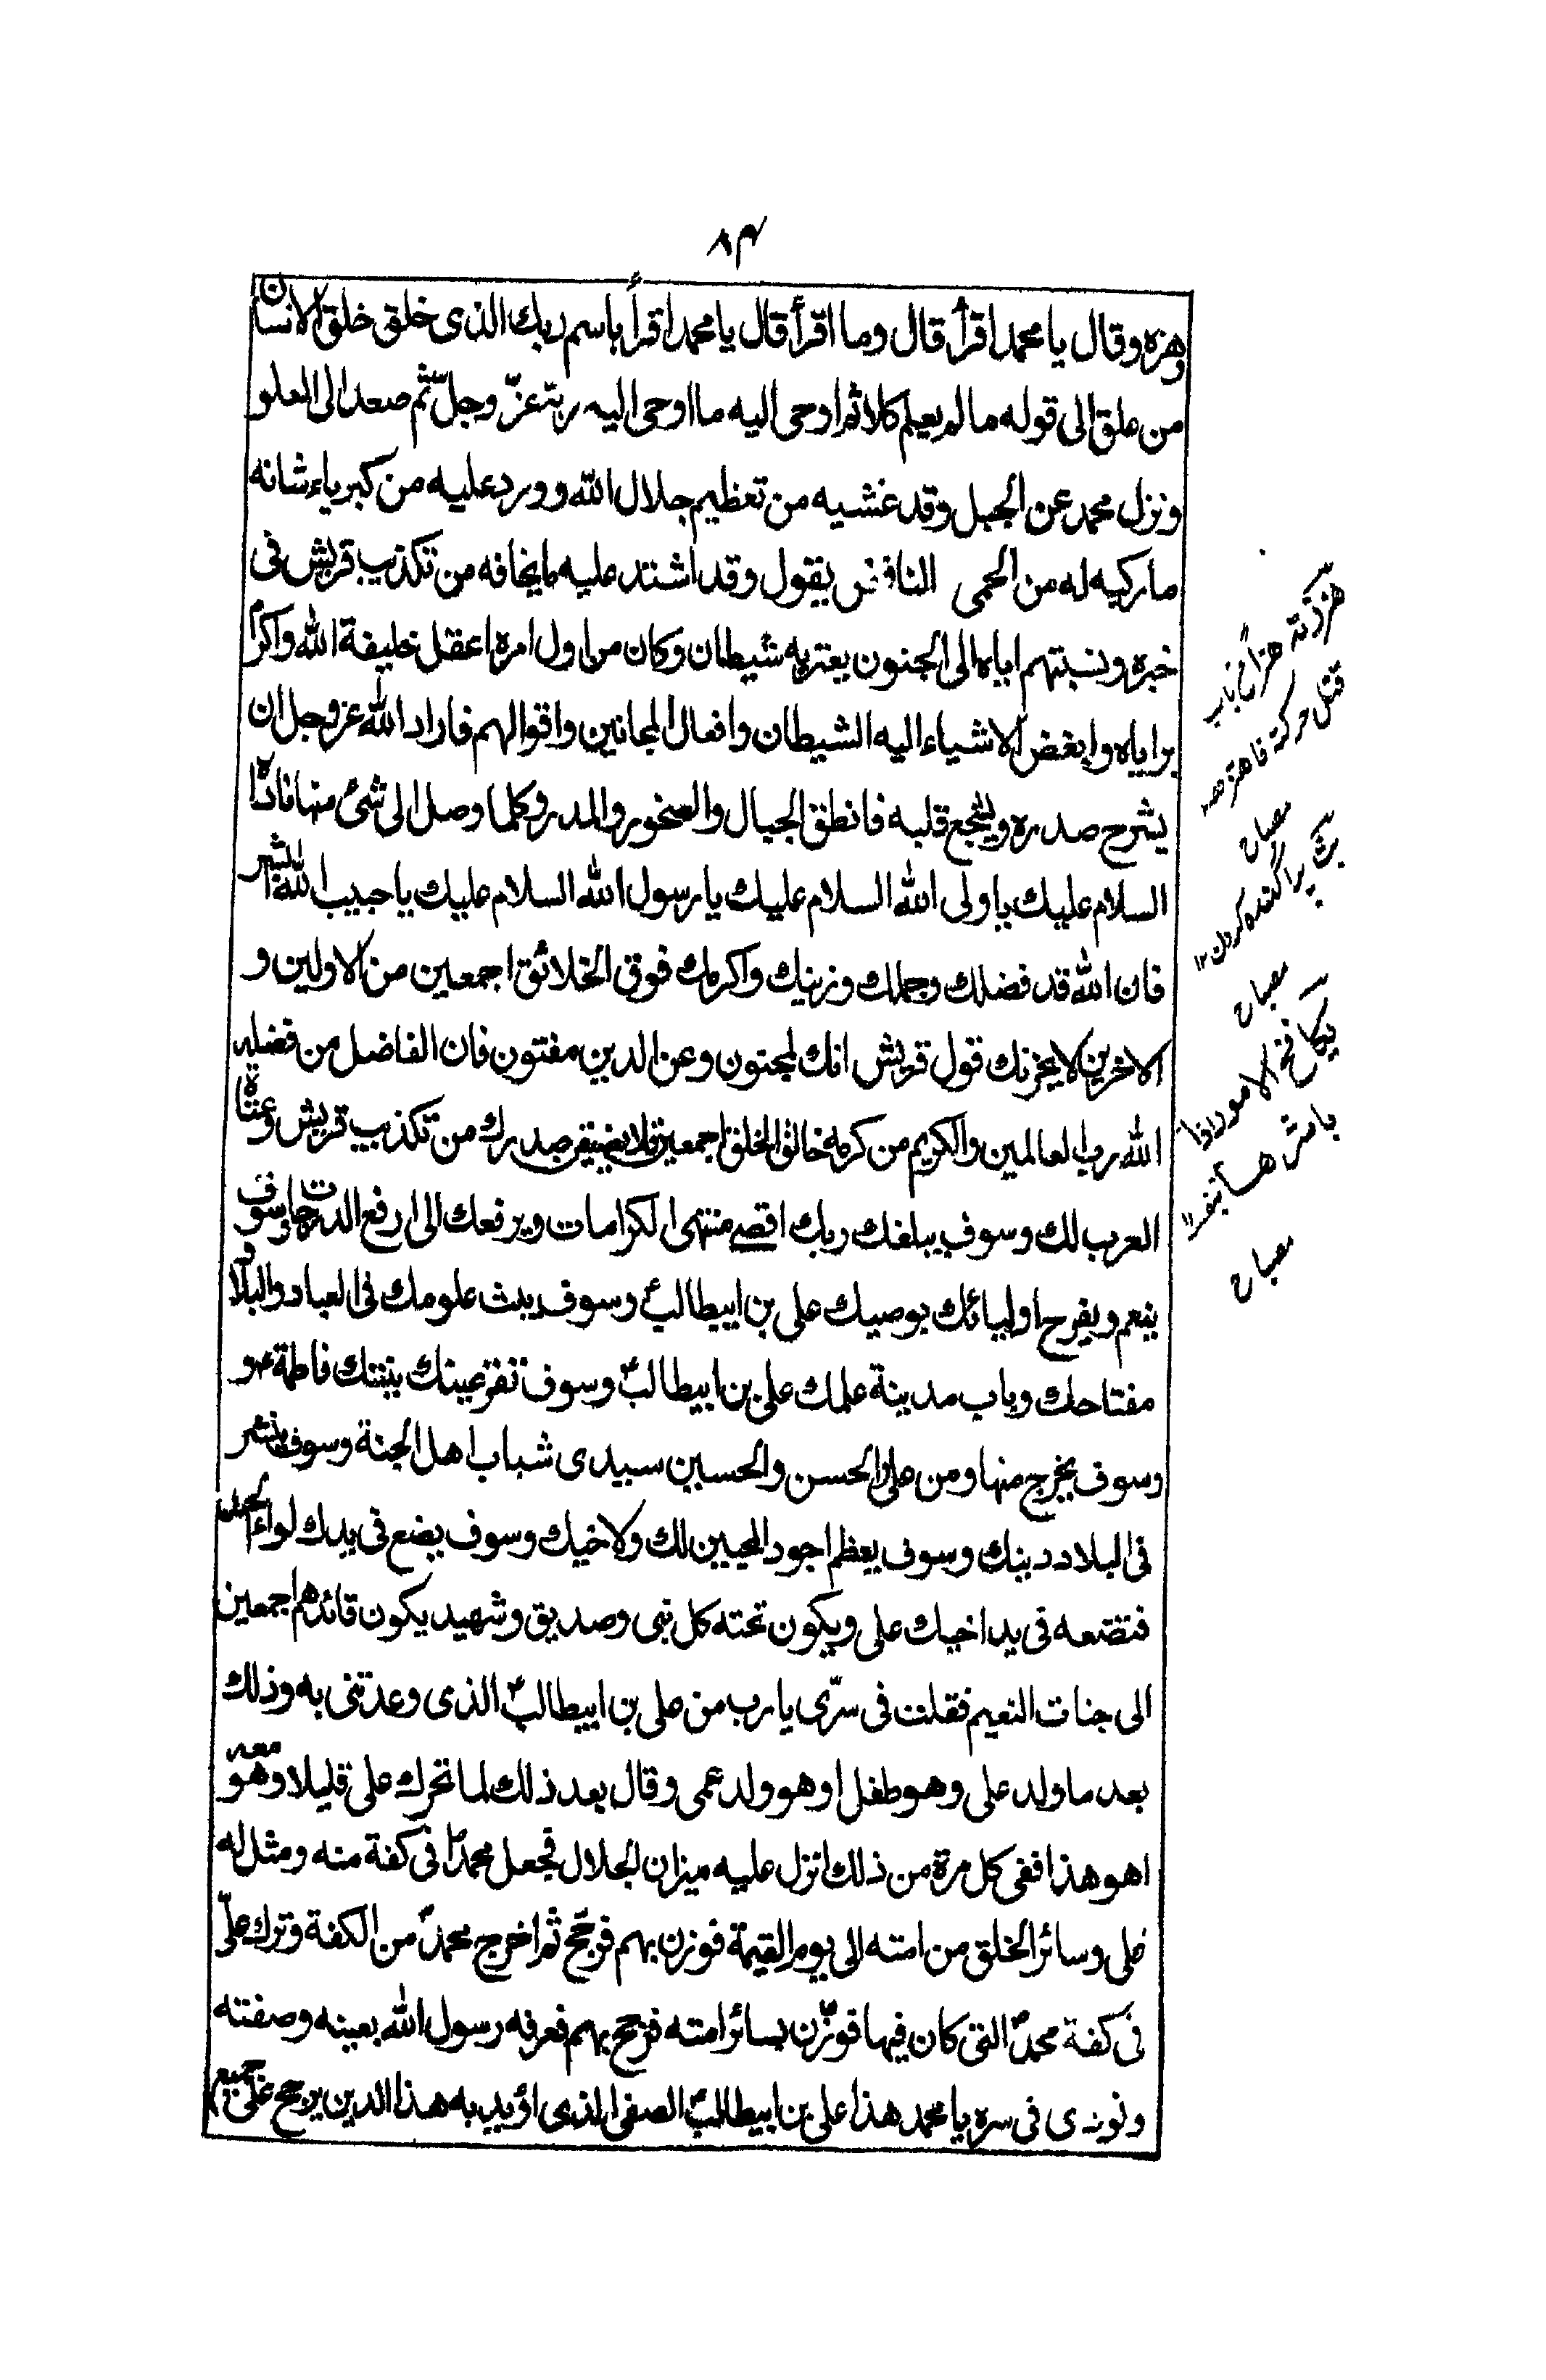 ٨٤
وهزه وقال يا محمد اقرأ قال وما اقرأ قال يا محمد اقرأ باسم ربك الذى خلق خلق الانسان
من علق الى قوله ما لم يعلم كلا ثم اوحى اليه ما اوحى اليه ربه عزّ وجلّ ثم صعد الى العلو
ونزل محمد عن الجبل وقد غشيه من تعظيم جلال الله وورد عليه من كبرياء شانه
ما ركبه له من الحمى النافض يقول وقد اشتد عليه ما يخافه من تكذيب قريش فى
خبره ونسبتهم اياه الى الجنون يعتريه شيطان وكان من اول امره اعقل خليفة الله واكرم
براياه وابغض الاشياء اليه الشيطان وافعال المجانين واقوالهم فاراد الله عز وجل ان
يشرح صدره ويشجع قلبه فانطق الجبال والصخور والمدر وكلما وصل الى شئ منها ناداه
السلام عليك يا ولى الله السلام عليك يا رسول الله السلام عليك يا حبيب الله ابشر
فان الله قد فضلك وجملك وزينك واكرمك فوق الخلائق اجمعين من الاولين و
الاخرين لا يحزنك قول قريش انك لمجنون وعن الدين مفتون فان الفاضل من فضله
الله رب العالمين والكريم من كرمه خالق الخلق اجمعين فلا يضيق صدرك من تكذيب قريش وعتاة
العرب لك وسوف يبلغك ربك اقصى منتهى الكرامات ويرفعك الى ارفع الدرجات وسوف
ينعم ويفرح اوليائك بوصيك على بن ابيطالبؑ وسوف يبث علومك فى العباد والبلاد
مفتاحك وباب مدينة علمك على بن ابيطالبؑ وسوف تقر عينك ببنتك فاطمةؑ و
وسوف يخرج منها ومن على الحسن والحسين سيدى شباب اهل الجنة وسوف ينشر
فى البلاد دينك وسوف يعظم اجود المحبين لك ولاخيك وسوف يضع فى يدك لواء الحمد
فتضعه فى يد اخيك على ويكون تحته كل نبى وصديق وشهيد يكون قائدهم اجمعين
الى جنات النعيم فقلت فى سرّى يا رب من على بن ابيطالبؑ الذى وعدتنى به وذلك
بعد ما ولد على وهو طفل او هو ولد عمى وقال بعد ذلك لما تحرك على قليلا وهو معه
اهو هذا ففى كل مرة من ذلك انزل عليه ميزان الجلال فجعل محمدؐا فى كفة منه ومثل له
على وسائر الخلق من امته الى يوم القيمة فوزن بهم فرجّح ثم اخرج محمدؐ من الكفة وترك علىّ
فى كفة محمدؐ التى كان فيها فوزّن بسائر امته فرجح بهم فعرفه رسول الله بعينه وصفته
ونودى فى سره يا محمد هذا على بن ابيطالبؑ الصفى الذى اؤيد به هذا الدين يرجح على جميع
هززته هزا من باب
قتل حركته فاهتز ١٢
مصباح
بث پراگنده كردن ١٢
مصباح
يكافح الامور اذا
باشرها بنفسه ١٢
مصباح